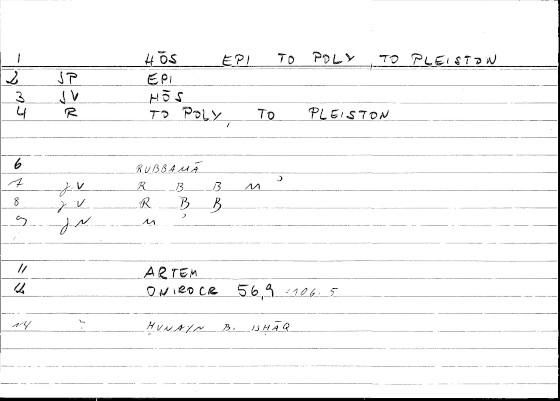 1 HŌS EPI TO POLY, TO PLEISTON
2 JP EPI
3 JV HŌS
4 R TO POLY, TO PLEISTON
6 RUBBAMĀ
7 JV R B B M ʾ
8 JV R B B
9 JN M ʾ
11 ARTEM
12 ONIROCR 56,9 :106.5
14 HUNAYN B. ISHĀQ